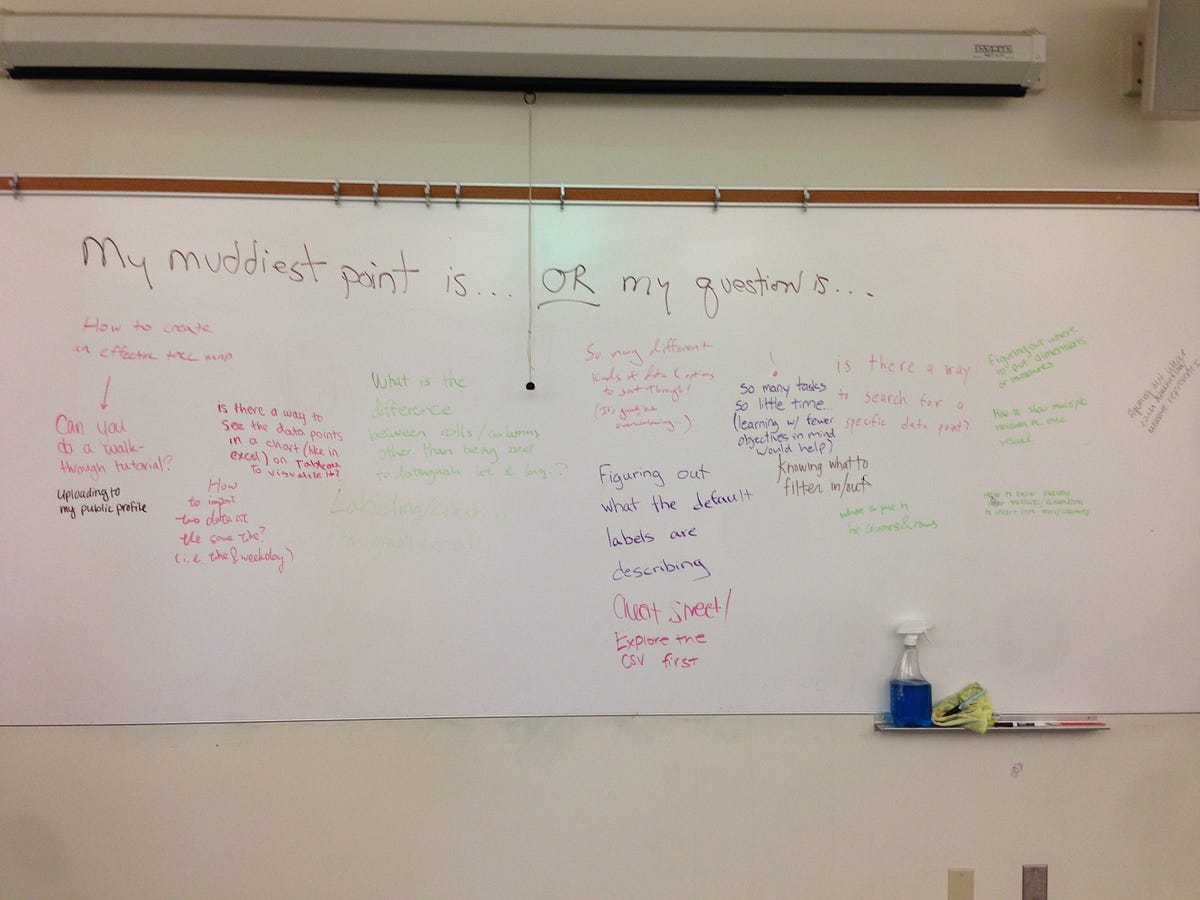 My muddiest point is... OR my question is...
How to create
an effective tree map
Can you
do a walk-
through tutorial?
uploading to
my public profile
is there a way to
see the data points
in a chart (like in
excel) on Tableau
to visualize it?
How
to import
two data at
the same time?
(i.e. time & weekday)
What is the
difference
between rolls/columns
other than being used
to distinguish lat. & long.?
Labeling/
So many different
kinds of data & options
to sort through!
(It's
overwhelming...)
Figuring out
what the default
labels are
describing
Cheat sheet/
Explore the
CSV first
!
So many tasks
So little time...
(learning w/ fewer
objectives in mind
would help)
is there a way
to search for a
specific data point?
Knowing what to
filter in/out
what to put in
the columns & rows
Figuring out where
to put dimensions
or measures
How to show multiple
in one
visual
How to know
measures/dimensions
to insert into rows/columns
Figuring out what
each dimension/
measure represents